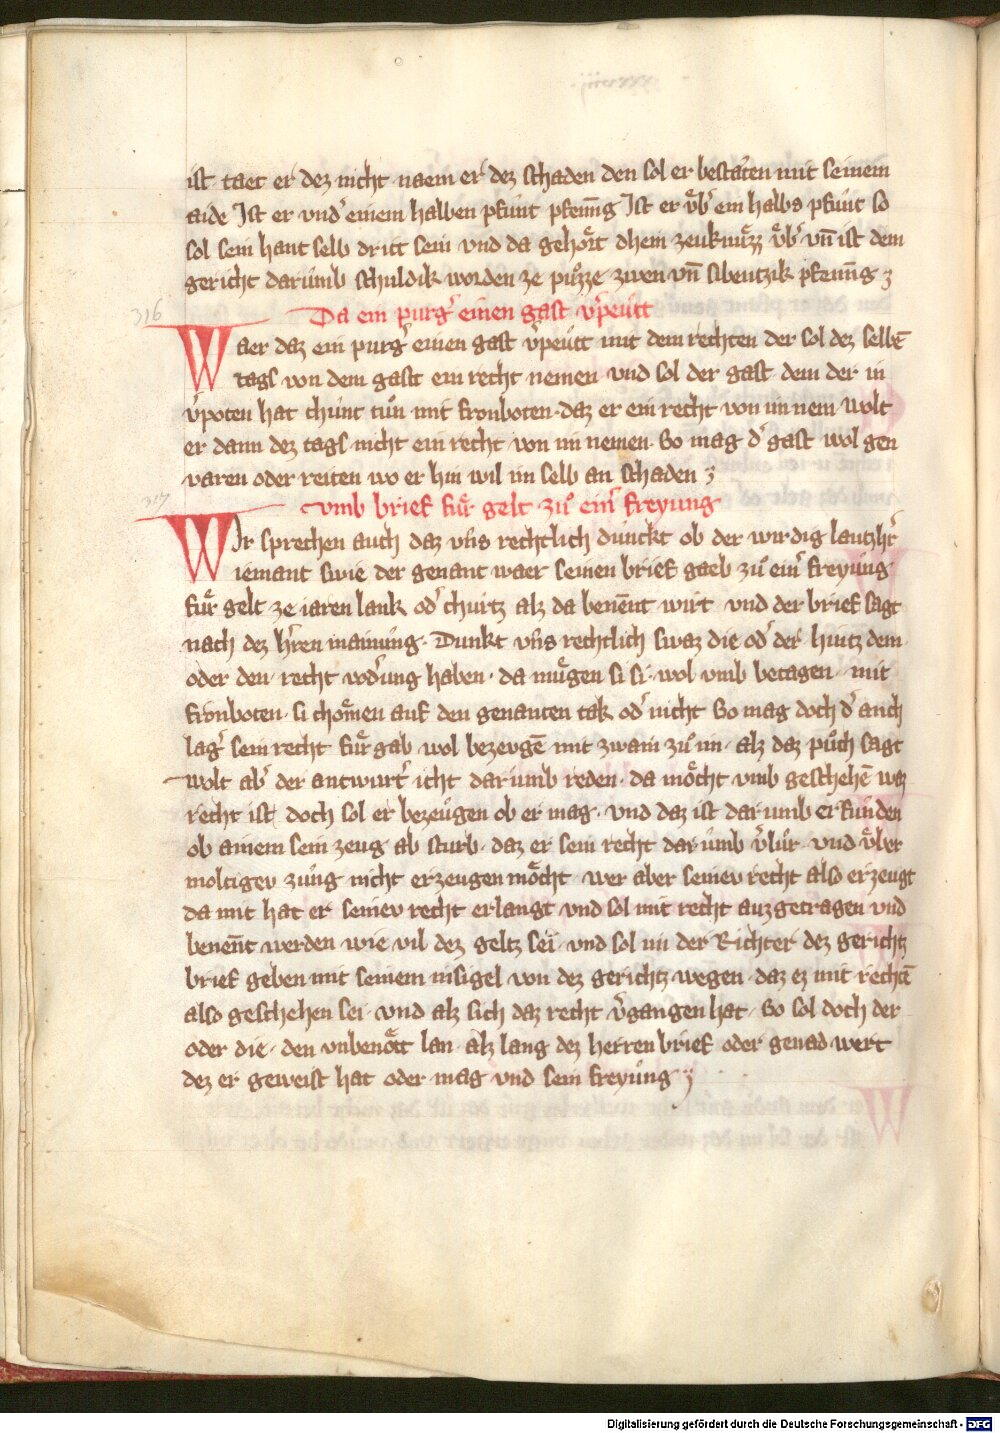 ist taet er dez nicht naem er dez schaden den sol er bestaͤten mit seinem
aide Ist er vnd̕ einem halben pfunt pfenn̄g Ist er vͤb̕ ein halbs pfunt so
sol sein hant selb dritt sein vnd da gehoͤrt dhein zeuknuͤzz vͤb̕ vn̄ ist dem
gericht darumb schuldik worden ze puͦzze zwen vn̄ sibentzik pfenn̄g
316
Da ein purg̕ einen gast v̕peutt
Waer daz ein purg̕ einen gast v̕peutt mit dem rechten der sol dez selbē
tags von dem gast ein recht nemen vnd sol der gast dem der in
v̕poten hat chunt tuͦn mit fronboten daz er ein recht von im nem Wolt
er dann dez tags nicht ein recht von im nemen So mag d̕ gast wol gen
varen oder reiten wo er hin wil im selb an schaden
317
vmb brief fuͤr gelt zuͦ ein̕ freyung
Wir sprechen auch daz vn̄s rechtlich dunckt ob der wirdig lantzh̕r
iemant swie der genant waer seinen brief gaeb zuͦ ein̕ freyung
fuͤr gelt ze iaren lank od̕ churtz alz da benēnt wirt vnd der brief sagt
nach dez h̕ren mainung Dunkt vn̄s rechtlich swaz die od̕ der hintz dem
oder den recht vod̕ung haben da muͤgen si si wol vmb betagen mit
fronboten si choͤmen auf den genanten tak od̕ nicht So mag doch d̕ anch
lag̕ sein recht fuͤrgab wol bezeugē mit zwain zuͦ im alz daz puͦch sagt
wolt ab̕ der antwurt̕ icht darumb reden da moͤcht vmb geschehē waz
recht ist doch sol er bezeugen ob er mag vnd daz ist darumb erfunden
ob ainem sein zeug ab sturb daz er sein recht darumb v̕lur vnd vͤber
moltigev zung nicht erzeugen moͤcht wer aber seinev recht also erzeugt
da mit hat er seinev recht erlangt vnd sol mit recht auzgetragen vnd
benen̄t werden wie vil dez geltz sei vnd sol im der Richter dez gerichtz
brief geben mit seinem insigel von dez gerichtz wegen daz ez mit rechtē
also geschehen sei vnd alz sich daz recht v̕gangen hat So sol doch der
oder die den vnbenoͤtt lan alz lang dez herren brief oder genad wert
dez er geweist hat oder mag vnd sein freyung
Digitalisierung gefördert durch die Deutsche Forschungsgemeinschaft - DFG